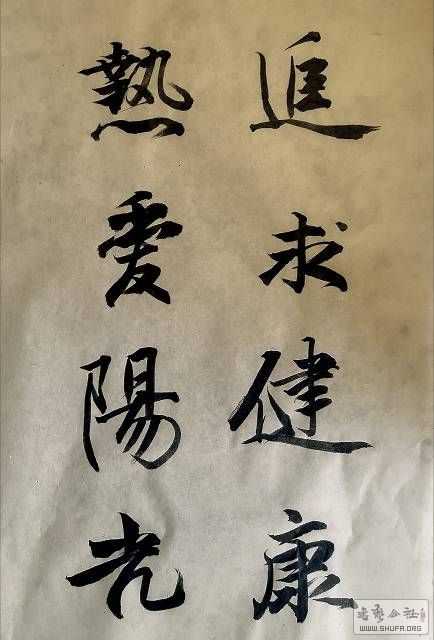 追求健康
熱愛陽光
书艺公社
WWW.SHUFA.ORG